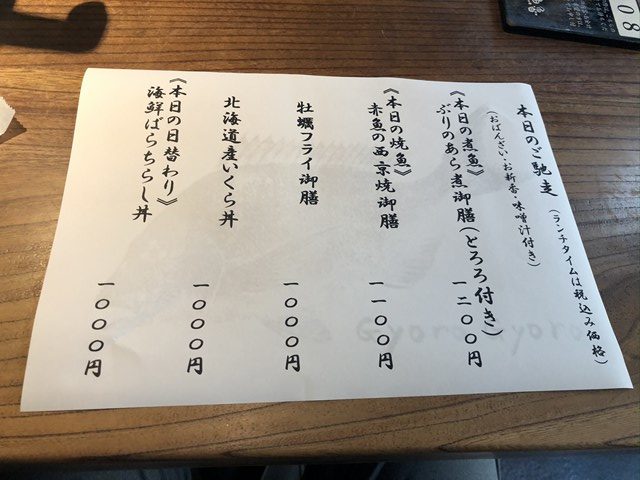 本日のご馳走 (ランチタイムは税込み価格)
(おばんざい・お新香・味噌汁付き)
《本日の煮魚》
ぶりのあら煮御膳(とろろ付き) 一二〇〇円
《本日の焼魚》
赤魚の西京焼御膳 一一〇〇円
牡蠣フライ御膳 一〇〇〇円
北海道産いくら丼 一〇〇〇円
《本日の日替わり》
海鮮ばらちらし丼 一〇〇〇円
08